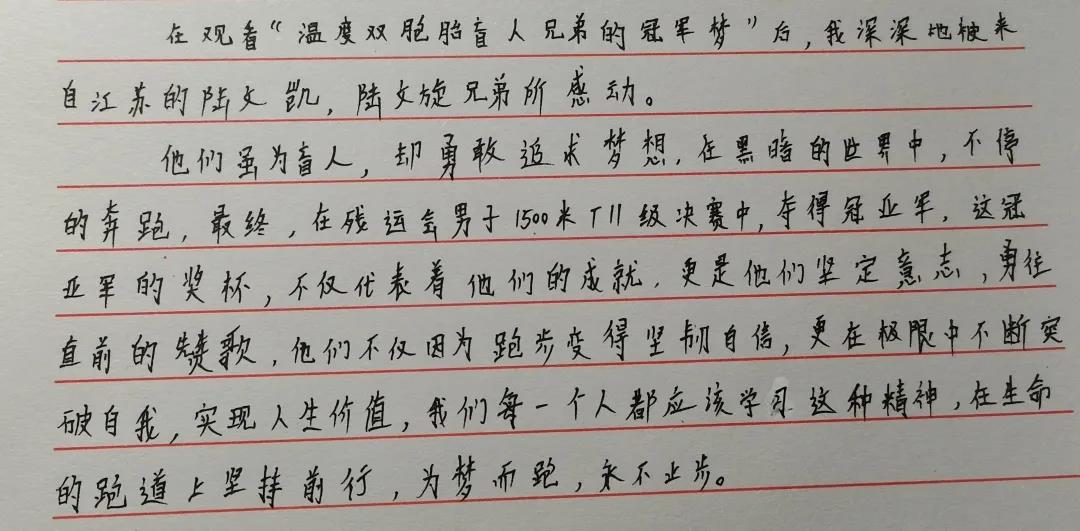 在观看“温度双胞胎盲人兄弟的冠军梦”后，我深深地被来
自江苏的陆文凯，陆文旋兄弟所感动。
他们虽为盲人，却勇敢追求梦想，在黑暗的世界中，不停
的奔跑，最终，在残运会男子1500米T11级决赛中，夺得冠亚军，这冠
亚军的奖杯，不仅代表着他们的成就，更是他们坚定意志，勇往
直前的赞歌，他们不仅因为跑步变得坚韧自信，更在极限中不断突
破自我，实现人生价值，我们每一个人都应该学习这种精神，在生命
的跑道上坚持前行，为梦而跑，永不止步。